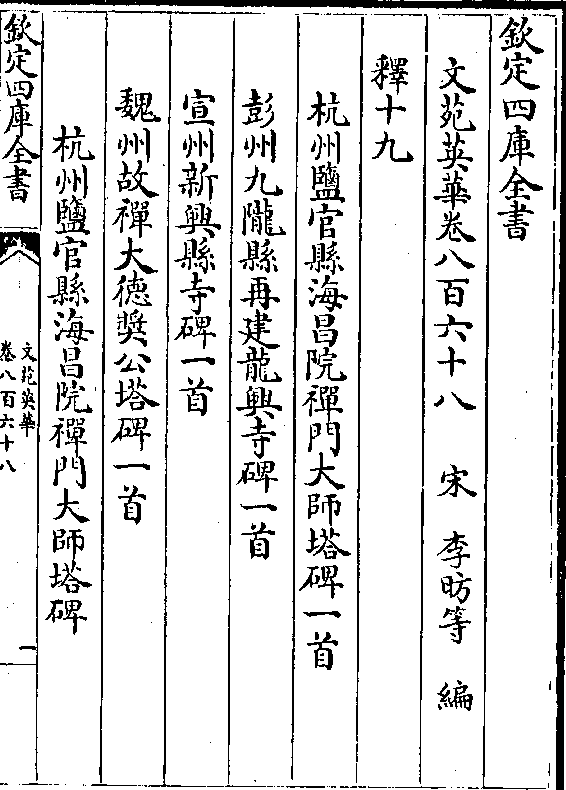 欽定四庫全書
文苑英華卷八百六十八　宋　李昉等　編
釋十九
杭州鹽官縣海昌院禪門大師塔碑一首
彭州九隴縣再建龍興寺碑一首
宣州新興縣寺碑一首
魏州故禪大德奬公塔碑一首
杭州鹽官縣海昌院禪門大師塔碑
欽定四庫全書
文苑英華
卷八百六十八
一